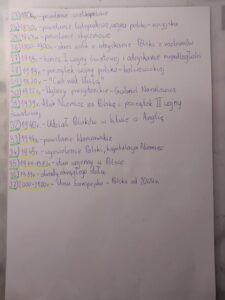 1806r. - powstanie wielkopolskie
1830r. - powstanie listopadowe, wojna polsko - rosyjska
1863r. - powstanie styczniowe
1918r. - koniec I wojny światowej i odzyskanie niepodległości
1919r. - początek wojny polsko - bolszewickiej
1920r. - "Cud nad Wisłą"
1922r. - Wybory prezydenckie - Gabriel Narutowicz
1939r. Atak Niemiec na Polskę i początek II wojny
światowej
1940r. - Udział Polaków w bitwie o Anglię
1944r. - powstanie Warszawskie
1945r. - wyzwolenie Polski, kapitulacja Niemiec
1981-1983r. - stan wojenny w Polsce
1989r. - obrady okrągłego stołu
Unia Europejska - Polska od 2004r.